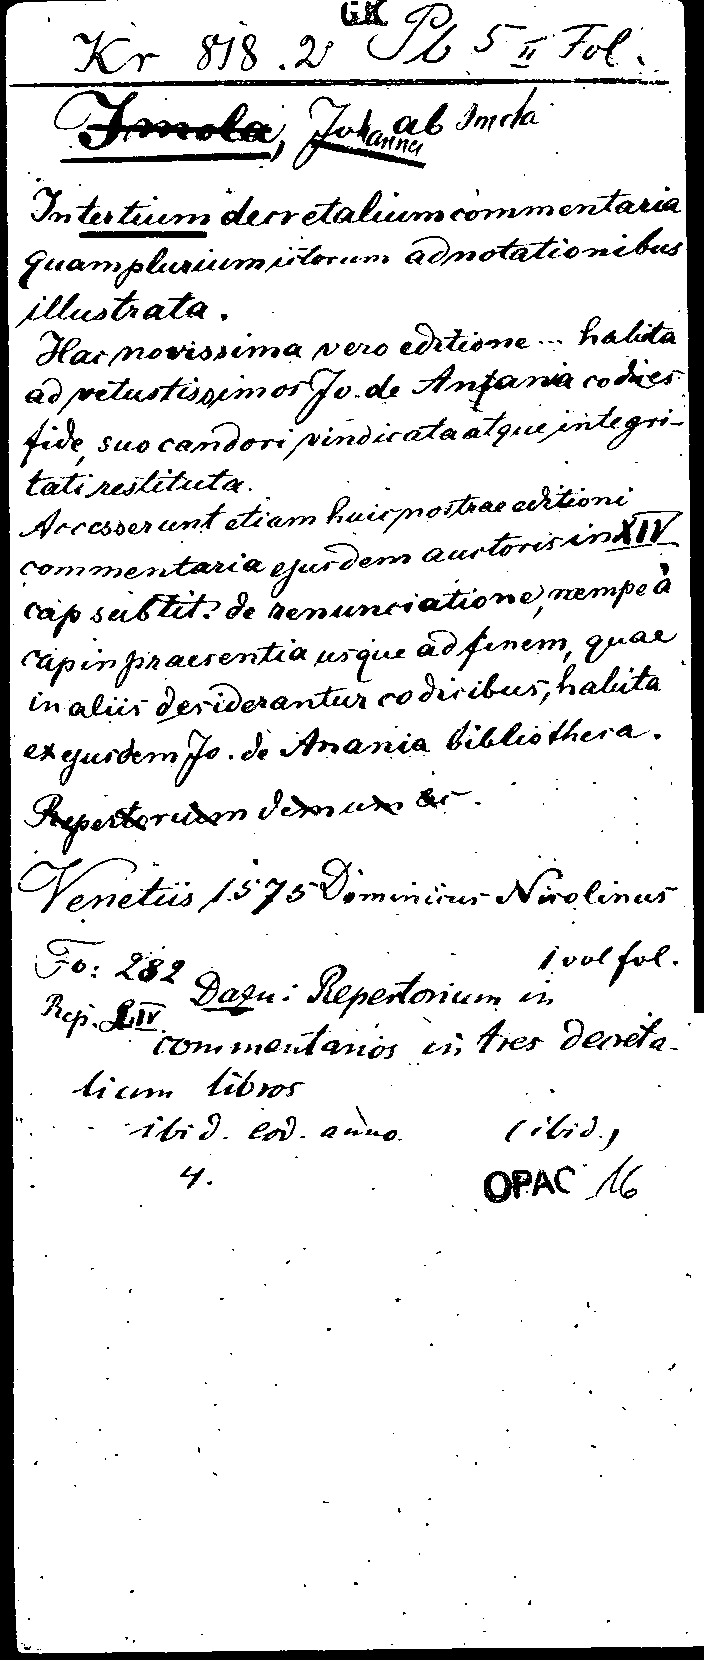 GK
Kr 818.2 Pb 5 II Fol.
Imola, Johannes ab Imola
In tertium decretalium commentaria
quamplurium ictorum adnotationibus
illustrata.
Hac novissima vero editione ... habita
ad vetustissimos Jo. de Anania codices
fide, suo candori, vindicata atque integri-
tati restituta.
Accesserunt etiam huic nostrae editioni
commentaria ejusdem auctoris in XIV
cap sub tit. de renunciatione, nempe à
cap in praesentia usque ad finem, quae
in aliis desiderantur codicibus, habita
ex ejusdem Jo. de Anania bibliotheca.
Repertorium demum &c.
Venetiis 1575 Dominicus Nicolinus
Fo: 282 1 vol fol.
Rep. LIV Dazu: Repertorium in
commentarios in tres decreta-
lium libros
ibid. eod. anno. (ibid.)
4.
OPAC 16